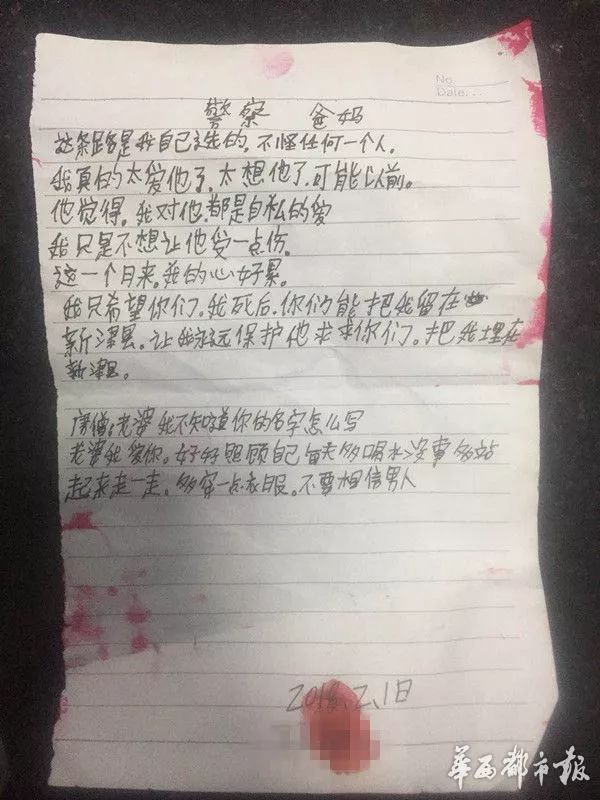 No.
Date...
警察 爸妈
这条路是我自己选的,不怪任何一个人.
我真的太爱他了.太想他了.可能以前.
他觉得.我对他.都是自私的爱
我只是不想让他受一点伤.
这一个月来.我的心好累.
我只希望你们.我死后.你们能把我留在
新津县.让我永远保护他求求你们.把我埋在
新津县.
老婆我不知道你的名字怎么写
老婆我爱你.好好照顾自己每天多喝水没事多站
起来走一走.多穿一点衣服.不要相信男人
2018.2.1日
华西都市报